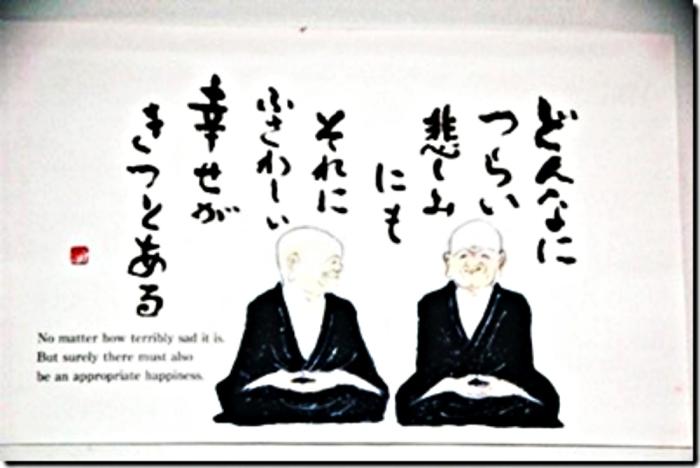 どんなに
つらい
悲しみ
にも
それに
ふさわしい
幸せが
きっとある
No matter how terribly sad it is.
But surely there must also
be an appropriate happiness.